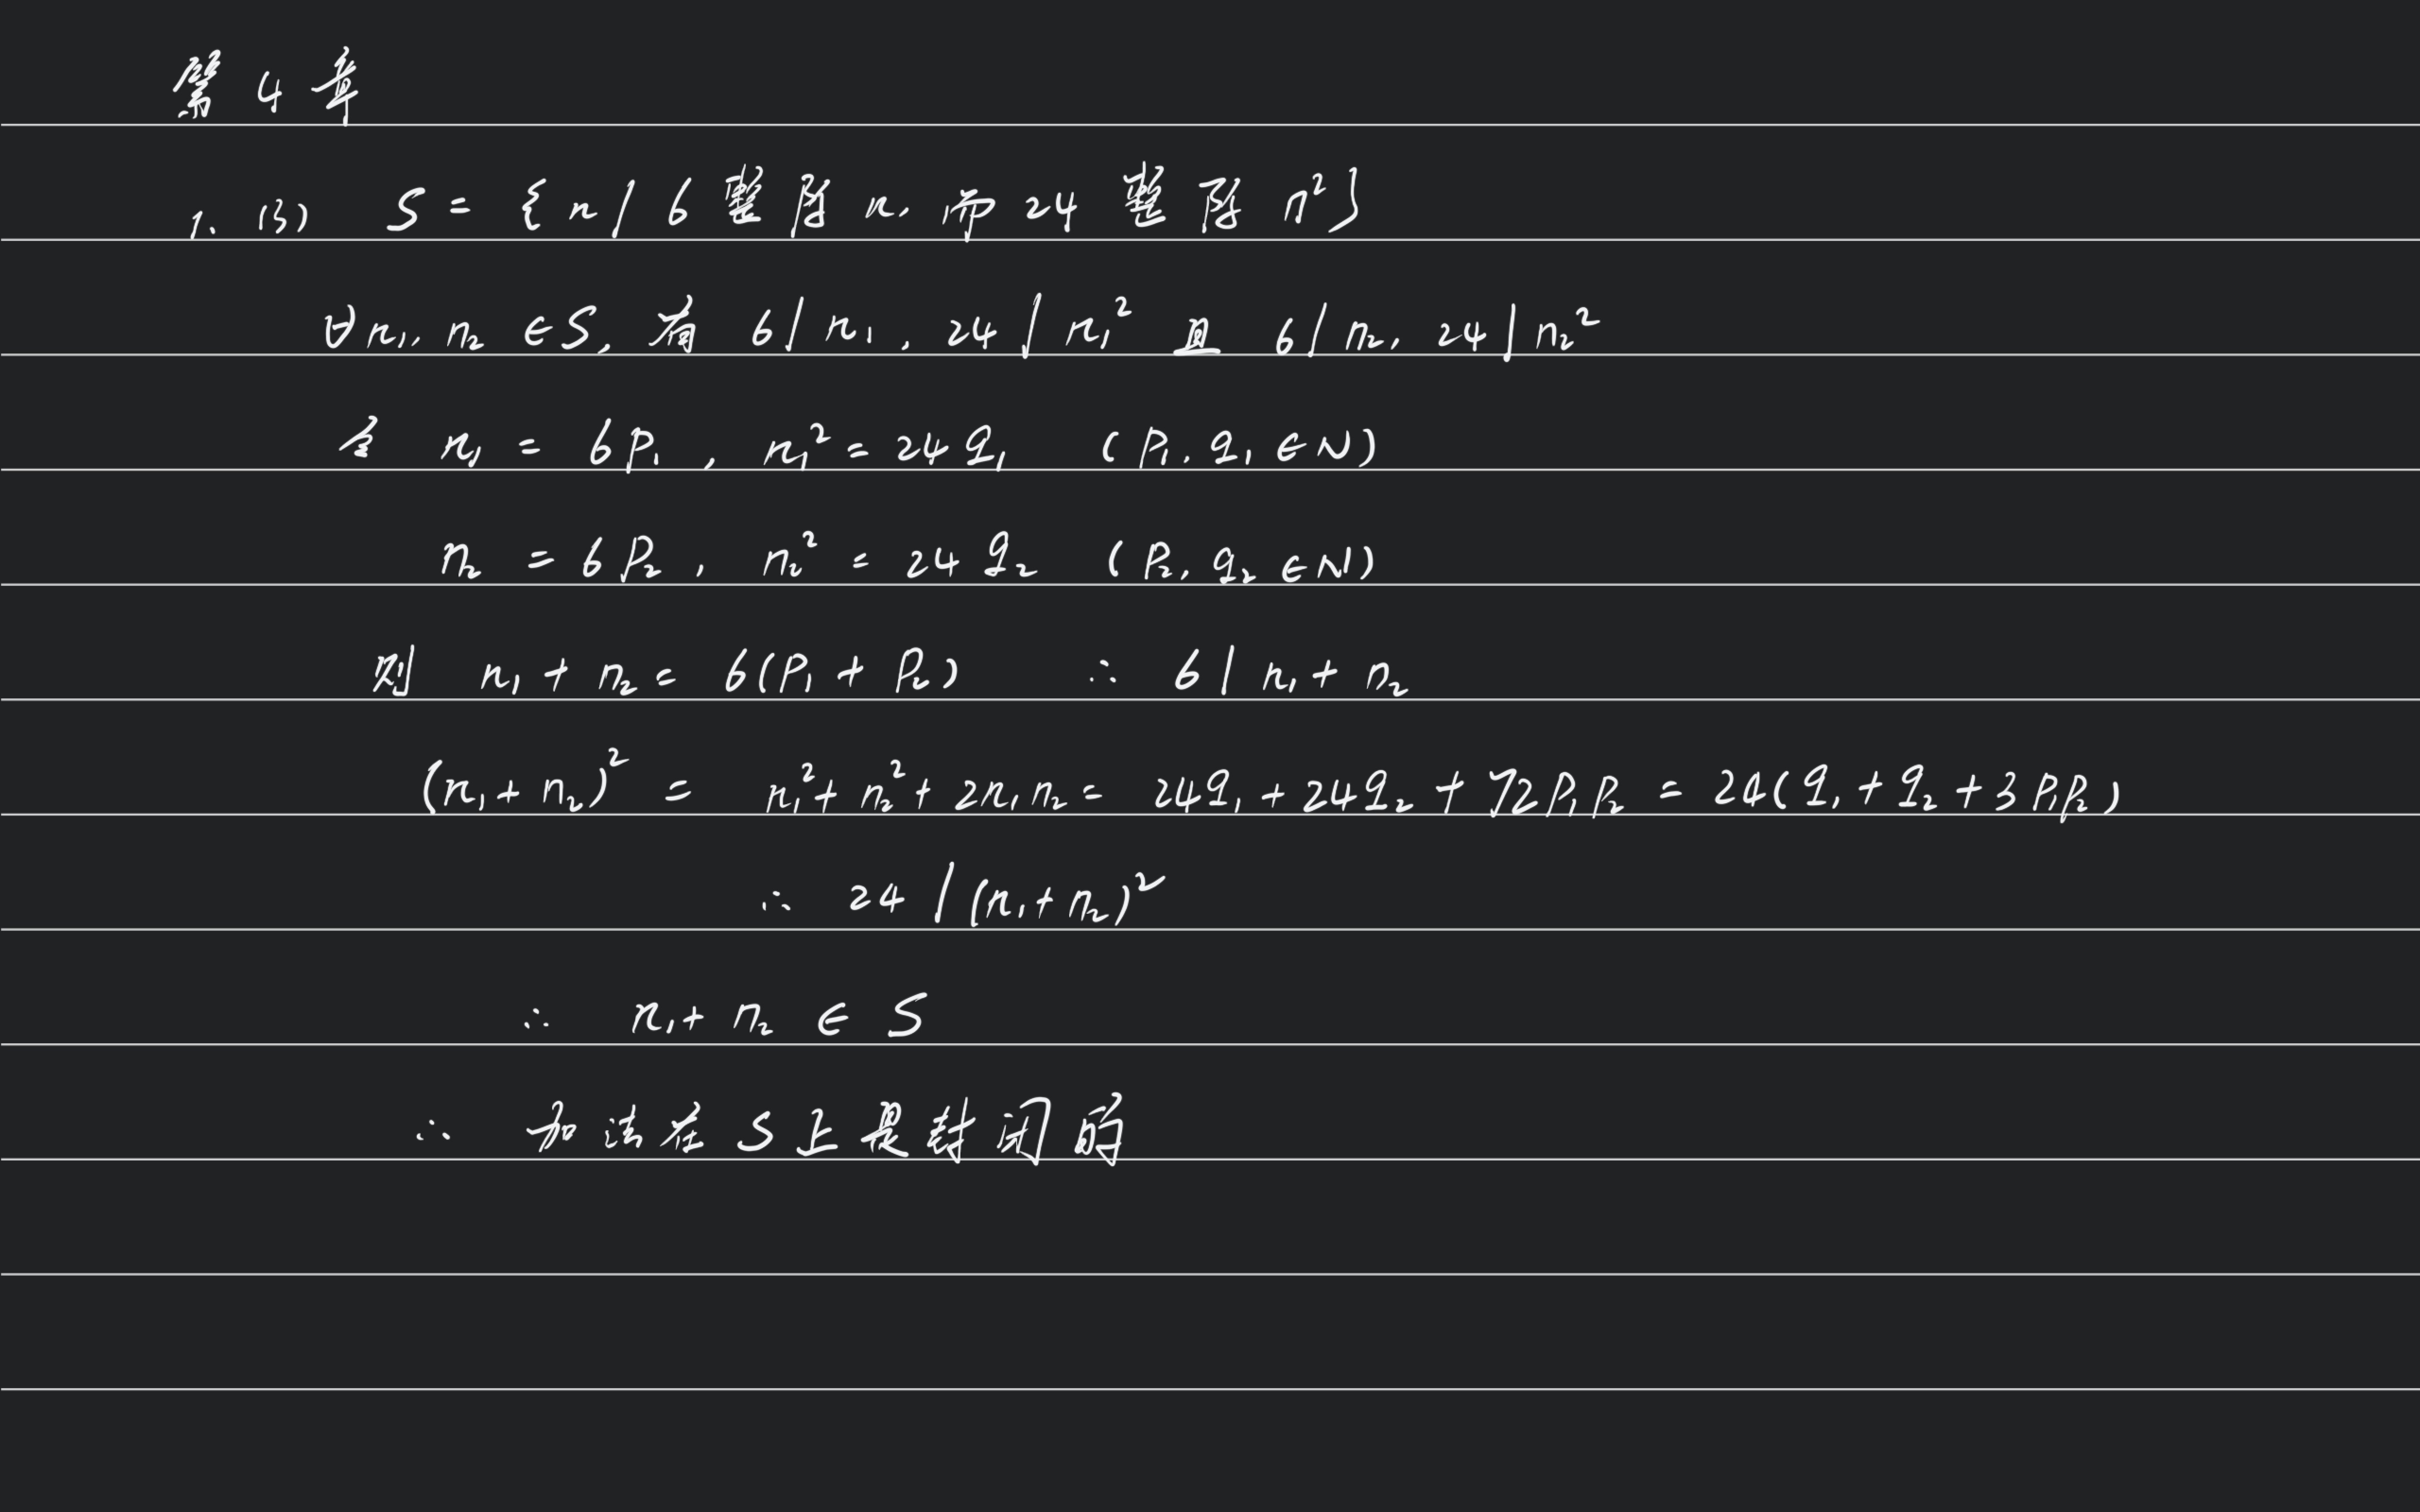 第4章
1. (3) S = {n | 6整除n, 而24整除n²}
∀n₁, n₂ ∈S, 有 6|n₁, 24|n₁² 且 6|n₂, 24|n₂²
令 n₁ = 6p₁, n₁² = 24q₁ (p₁, q₁ ∈N)
n₂ = 6p₂, n₂² = 24q₂ (p₂, q₂ ∈N)
则 n₁ + n₂ = 6(p₁ + p₂) ∴ 6 | n₁ + n₂
(n₁ + n₂)² = n₁² + n₂² + 2n₁n₂ = 24q₁ + 24q₂ + 72p₁p₂ = 24(q₁ + q₂ + 3p₁p₂)
∴ 24 | (n₁ + n₂)²
∴ n₁ + n₂ ∈ S
∴ 加法在S上是封闭的